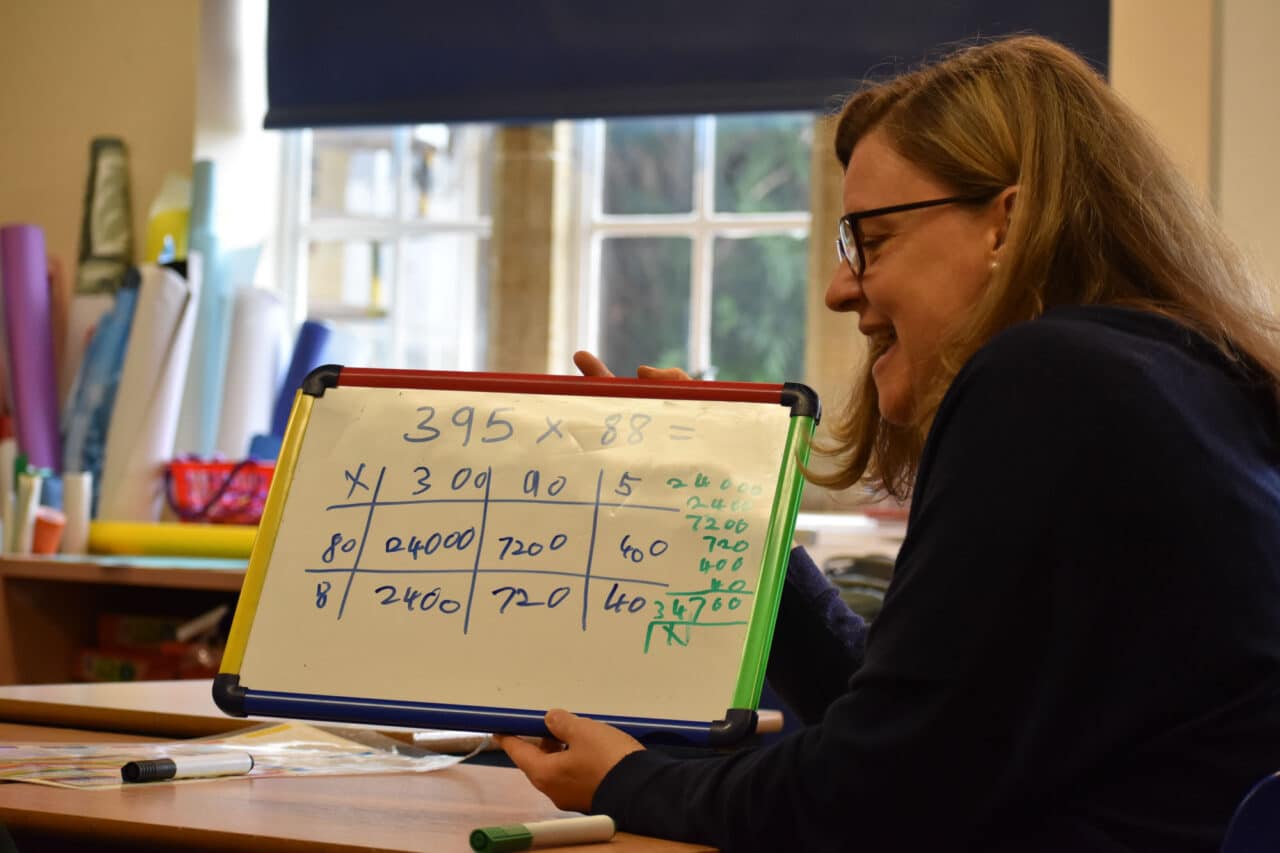 395 x 88 =
X 300 90 5
80 24000 7200 400
8 2400 720 40
24000
2400
7200
720
400
40
34760